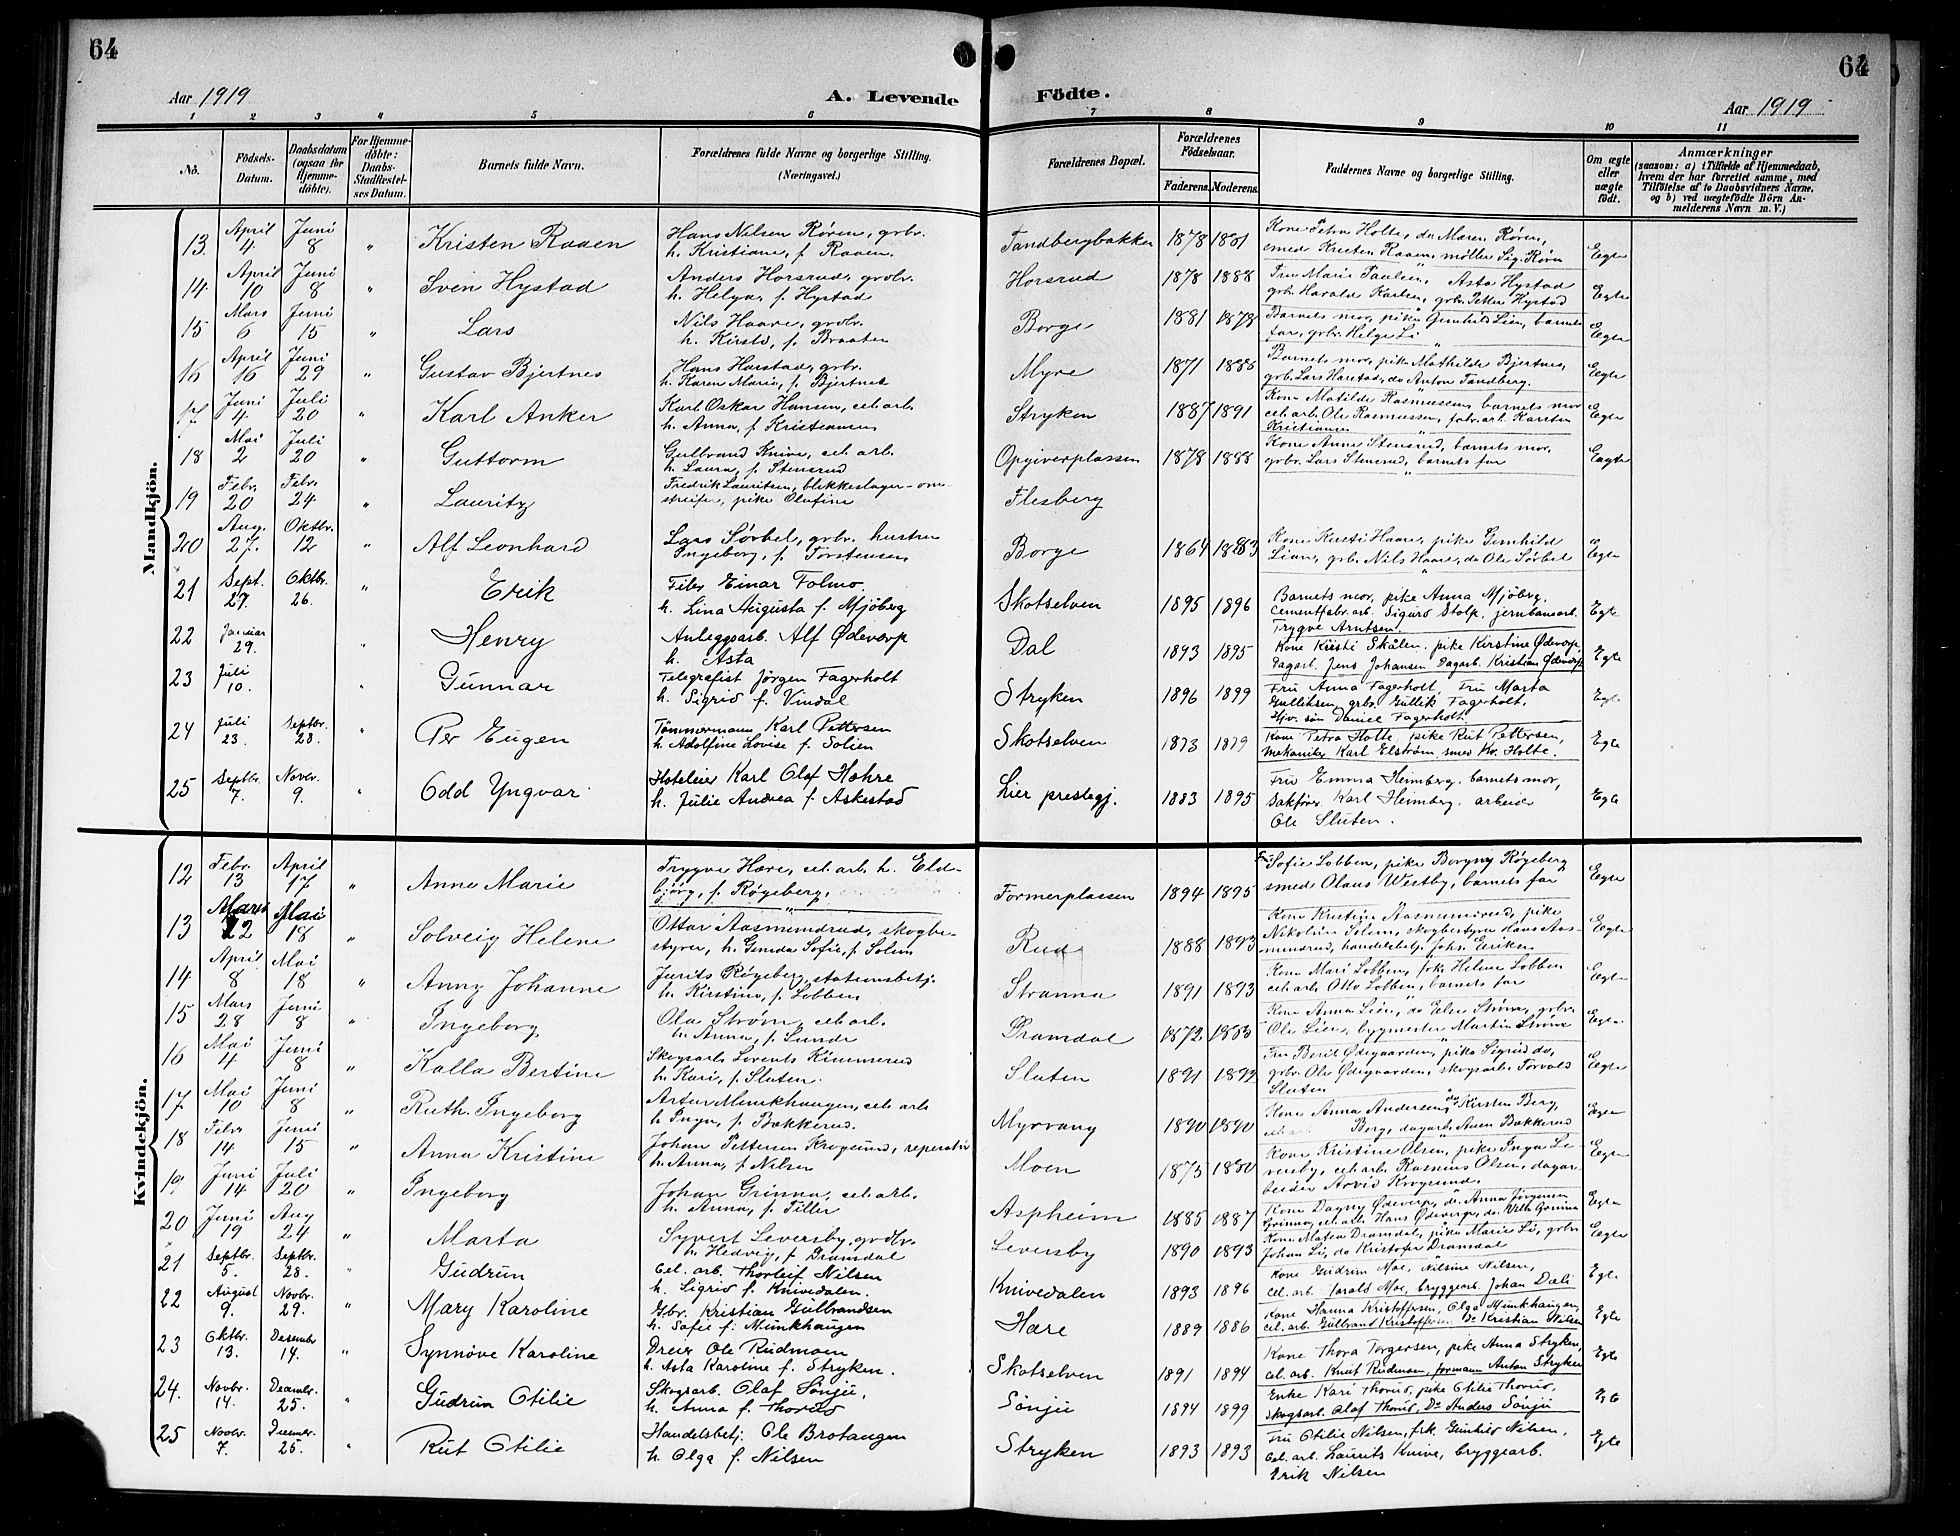 64
64
Aar 1919
A. Levende Födte.
Aar 1919
1 2 3 4 5 6 7 8 9 10 11
No. Födsels-Datum. Daabsdatum (ogsaa for Hjemmedöbte). For Hjemmedöbte: Daabs-Stadfæstelses Datum. Barnets fulde Navn. Forældrenes fulde Navne og borgerlige Stilling. (Næringsvei.) Forældrenes Bopæl. Forældrenes Födselsaar. Faderens. Moderens. Faddernes Navne og borgerlige Stilling. Om ægte eller uægte födt. Anmærkninger (saasom: a) i Tilfælde af Hjemmedaab, hvem der har forrettet samme, med Tilföielse af to Daabsvidners Navne. og b) ved uægtefödte Börn Anmelderens Navn m. V.)
Mandkjön.
13. April 4 Juni 8 " Kristen Raaen Hans Nilsen Røren, grbr. h. Kristiane, f. Raaen. Tandbergbakken 1878 1881 Kone Petra Holte, do Maren Røren, smed Kristen Raaen, møller Sig. Røren Egte
14 April 10 Juni 8 " Sven Hystad Anders Horsrud, grdbr. h. Helga, f. Hystad Horsrud 1878 1888 Fru Marie Paulsen, Asta Hystad grbr. Harald Karlsen, grbr. Petter Hystad Egte
15 Mars 6 Juni 15 " Lars Nils Haare, grdbr. h. Kirsti, f. Braaten Borge 1881 1878 Barnets mor, pike Gunhild Lien, barnets far, grbr. Helge Li Egte
16 April 16 Juni 29 " Gustav Bjertnes Hans Harstad, grbr. h. Karen Marie, f. Bjertnes Myre 1871 1885 Barnets mor, pike Mathilde Bjertnes, grbr. Lars Harstad, do Anton Tandberg. Egte
17 Juni 4 Juli 20 " Karl Anker Karl Oskar Hansen, cel. arb. h. Anna, f. Kristiansen Stryken 1887 1891 Kone Matilde Rasmussen, barnets mor cel. arb. Ole Rasmussen, fabr. arb. Karsten Kristiansen Egte
18 Mai 2 Juli 20 " Guttorm Gulbrand Knive, cel. arb. h. Laura, f. Stensrud Opgiverplassen 1878 1888 Kone Anne Stensrud, barnets mor, grbr. Lars Stensrud, barnets far Eagte
19 Febr. 20 Febr. 24 " Lauritz Fredrik Lauritsen, blikkeslager - omstreifer, pike Olufine Flesberg
20 Aug. 27. Oktbr. 12 " Alf Leonhard Lars Sørbel, grbr. hustru Ingeborg, f. Torstensen Borge 1864 1883 Kone Kirsti Haare, pike Gunhild Lien, grbr. Nils Haare, do Ole Sørbel Egte
21 Sept. 27. Oktbr. 26. " Erik Filer Einar Folmo h. Lina Augusta f. Mjöberg Skotselven 1895 1896 Barnets mor, pike Anna Mjöberg, Cementfabr. arb. Sigurd Stolp, jernbanearb. Trygve Arntsen. Egte
22 Januar 29. " Henry Anlegsarb. Alf Ødeværp h. Asta Dal 1893 1895 Kone Kirsti Skålen. pike Kirstine Ødeværp. Dagarb. Jens Johansen Dagarb. Kristian Ødeværp Egte
23 Juli 10. " Gunnar Telegrafist Jörgen Fagerholt h. Sigrid f. Vindal Stryken 1896 1899 Fru Anna Fagerholt. Fru Marta Gullitsen grbr. Gullik Fagerholt. Hjv. søn Daniel Fagerholt. Egte
24 Juli 23. Septbr. 28. " Per Eugen Tömmermann Karl Pettersen h. Adolfine Lovise f. Solien Skotselven 1873 1879 Kone Petra Holte, pike Rut Pettersen, mekaniker Karl Elström smed Kr. Holte. Egte
25 Septbr. 7. Novbr. 9. " Odd Yngvar Hoteleier Karl Olaf Hohre h. Julie Andrea f. Askestad Lier prestegj. 1883 1895 Fru Emma Heimberg. barnets mor, Sakfører Karl Heimberg. arbeider Ole Sluten. Egte
Kvindekjön.
12 Febr. 13 April 17 " Anne Marie Trygve Hære, cel. arb. h. Eldbjörg, f. Røgeberg. Formerplassen 1894 1895 Fru Sofie Lobben, pike Borgny Røgeberg smed Olaus Westby, barnets far Egte
13 Mars 22 Mai 18 " Solveig Helene Ottar Aasmundrud, skogbestyrer, h. Gunda Sofie, f. Solem Rud 1888 1893 Kone Kristine Aasmundrud, pike Nikoline Solem, skogbestyrer Hans Aasmundrud, handelsbetj. Johs. Eriksen Egte
14 April 8 Mai 18 " Anny Johanne Jurits Røgeberg, stationsbetj. h. Kirstine, f. Lobben Stranna 1891 1893 Kone Mari Lobben, frk. Helene Lobben cel. arb. Otto Lobben, barnets far Egte
15 Mars 28 Juni 8 " Ingeborg Ola Strøm, cel. arb. h. Anna, f. Lunde Dramdal 1872 1883 Kone Anna Lien, do Else Strøm, grbr. Ole Lien, bygmester Martin Strøm Egte
16 Mai 4 Juni 8 " Kalla Bertine Skogsarb. Lorents Kimmerud h. Kari, f. Sluten. Sluten 1891 1892 Fru Berit Ødegaarden, pike Sigrid do, grbr. Ole Ødegaarden, skogsarb. Torvald Sluten Egte
17 Mai 10 Juni 8 " Ruth Ingeborg Artur Munkhaugen, cel. arb. h. Inga, f. Bækkerud. Myrvang 1890 1890 Kone Anna Andersen, do Kirsten Berg, Berg, dagarb. Aven Bækkerud Egte
18 Febr 14 Juni 15 " Anna Kristine Johan Pettersen Krogsrud, reperatør h. Anna, f. Nilsen Moen 1875 1880 Kone Kristine Olsen, pike Inga Leversby, cel. arb. Rasmus Olsen, dagarbeider Arvid Krogsrud. Egte
19 Juni 14 Juli 20 " Ingeborg Johan Grinna, cel. arb. h. Anna, f. Tiller Aspheim 1885 1887 Kone Dagny Ødeverp, do. Anna Jörgensen Grinna, cel. arb. Hans Ødeverp, do. Vilh. Grinna Egte
20 Juni 19 Aug 24 " Marta Syvert Leversby, grdbr. h. Hedvig, f. Dramdal Leversby 1890 1893 Kone Matea Dramdal, pike Marie Li, grbr. Johan Li, do Kristofer Dramdal Egte
21 Septbr. 5. Septbr. 28. " Gudrun Cel. arb. Thorleif Nilsen h. Sigrid f. Knivedalen. Knivedalen 1893 1896 Kone Gudrun Moe, Nilsine Nilsen, cel. arb. Harald Moe, bryggearb. Johan Dæli Egte
22 August 9. Novbr. 29. " Mary Karoline Gbr. Kristian Gulbrandsen h. Sofie f. Munkhaugen Hære 1889 1886 Kone Hanna Kristoffersen, Olga Munkhaugen, cel. arb. Gulbrand Kristoffersen Do Kristian Nilsen Egte
23 Oktbr. 13. Desember 14. " Synnöve Karoline Dreier Ole Rudmoen h. Asta Karoline f. Stryken. Skotselven 1891 1894 Kone Thora Torgersen, pike Anna Stryken, cel. arb. Knut Rudmoen, formann Anton Stryken Egte
24. Novbr. 14. Desembr. 25. " Gudrun Otilie Skogsarb. Olaf Sönju, h. Anna f. Thorud Sönju 1894 1899 Enke Kari Thorud, pike Otilie Thorud, Skogsarb. Olaf Thorud, Do Anders Sönju Egte
25 Novbr. 7. Desembr. 25. " Rut Otilie Handelsbetj. Ole Brotangen h. Olga f. Nilsen Stryken 1893 1893 Fru Otilie Nilsen, frk. Gunhild Nilsen, Cel. arb. Laurits Knive, bryggearb. Erik Nilsen Egte